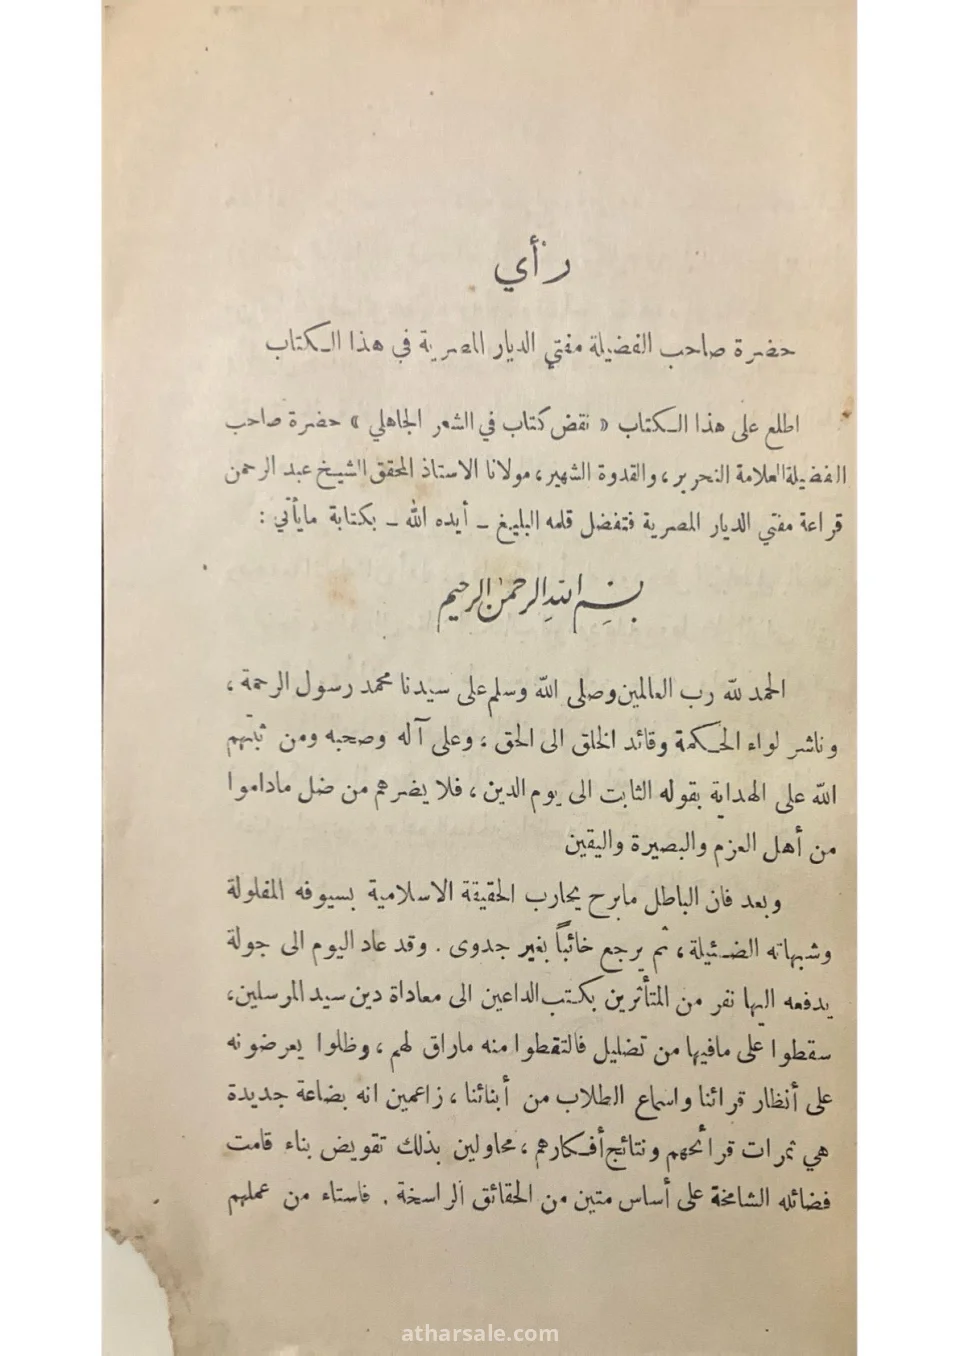 رأي
حضرة صاحب الفضيلة مفتي الديار المصرية في هذا الـكتاب
اطلع على هذا الـكتاب « نقض كتاب في الشعر الجاهلي » حضرة صاحب
الفضيلة العلامة النحرير، والقدوة الشهير، مولانا الاستاذ المحقق الشيخ عبد الرحمن
قراعة مفتي الديار المصرية فتفضل قلمه البليغ ـ أيده الله ـ بكتابة مايأتي :
بسم الله الرحمن الرحيم
الحمد لله رب العالمين وصلى الله وسلم على سيدنا محمد رسول الرحمة ،
وناشر لواء الحـكمة وقائد الخلق الى الحق ، وعلى آله وصحبه ومن ثبتهم
الله على الهداية بقوله الثابت الى يوم الدين ، فلا يضرهم من ضل ماداموا
من أهل العزم والبصيرة واليقين
وبعد فان الباطل مابرح يحارب الحقيقة الاسلامية بسيوفه المفلولة
وشبهاته الضـئيلة ، ثم يرجع خائباً بغير جدوى . وقد عاد اليوم الى جولة
يدفعه اليها نفر من المتأثرين بكـتب الداعين الى معاداة دين سيد المرسلين،
سقطوا على مافيها من تضليل فالتقطوا منه ماراق لهم ، وظلوا يعرضونه
على أنظار قرائنا واسماع الطلاب من أبنائنا ، زاعمين انه بضاعة جديدة
هي ثمرات قرائحهم ونتائج أفـكارهم ، محاولين بذلك تقويض بناء قامت
فضائله الشامخة على أساس متين من الحقائق الراسخة . فاستاء من عملهم
atharsale.com